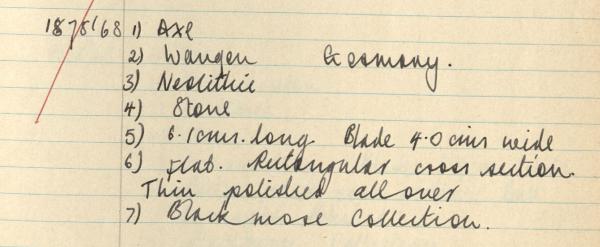 1878/68 1) Axe
2) Wangen Germany.
3) Neolithic
4) Stone
5) 6.1cms. long. Blade 4.0 cms wide
6) Flat. Rectangular cross section.
Thin polished all over
7) Blackmore Collection.